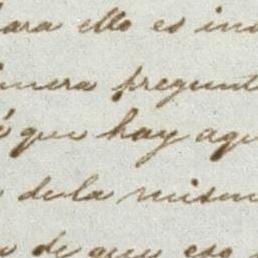 para ello es in
primera pregunt
é que hay aqu
de la mism
a de que eso